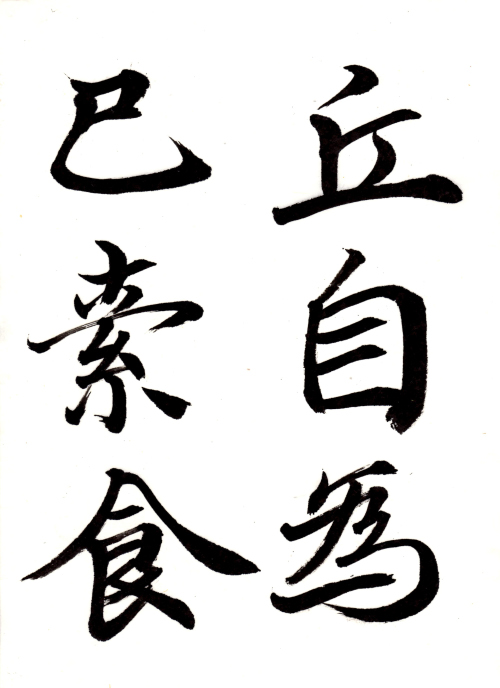 丘自為
巳索食